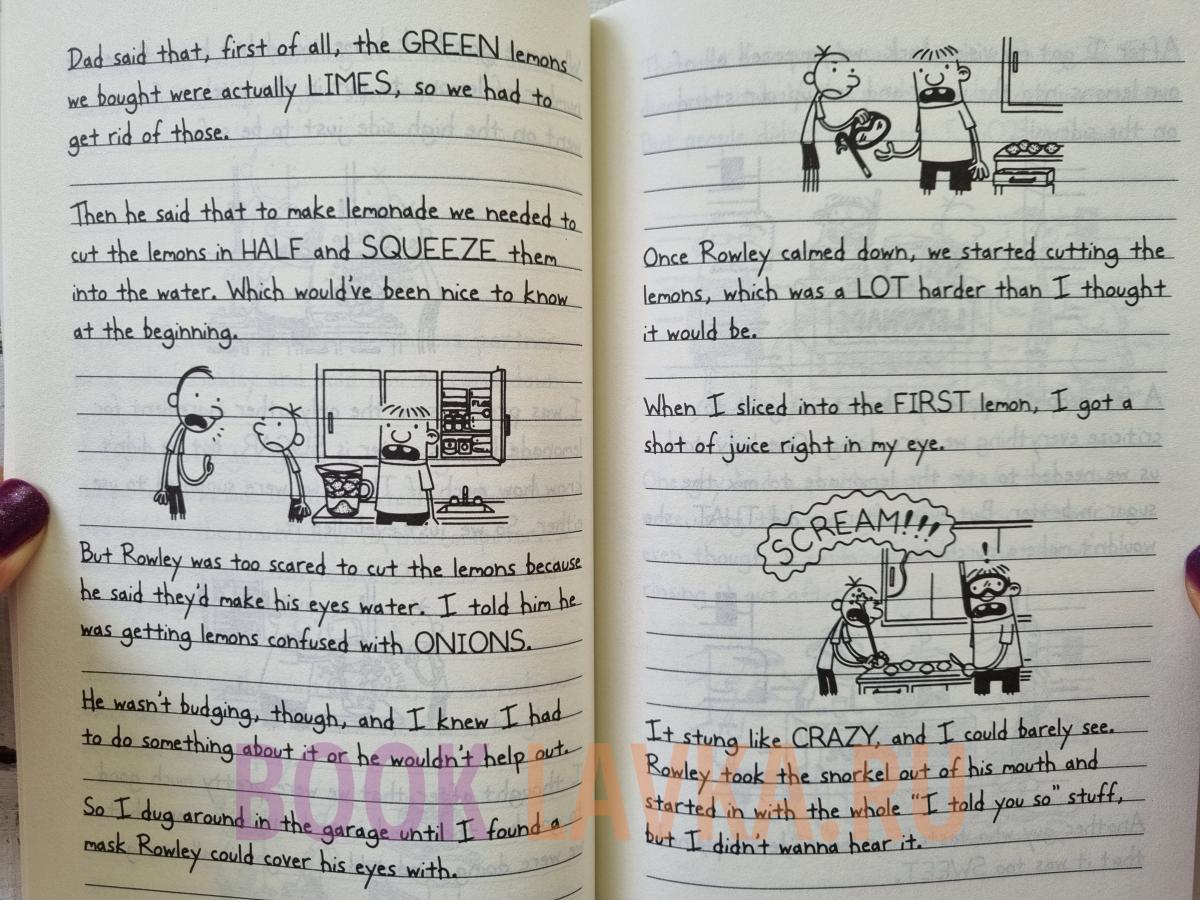 Dad said that, first of all, the GREEN lemons
we bought were actually LIMES, so we had to
get rid of those.
Then he said that to make lemonade we needed to
cut the lemons in HALF and SQUEEZE them
into the water. Which would've been nice to know
at the beginning.
But Rowley was too scared to cut the lemons because
he said they'd make his eyes water. I told him he
was getting lemons confused with ONIONS.
He wasn't budging, though, and I knew I had
to do something about it or he wouldn't help out.
So I dug around in the garage until I found a
mask Rowley could cover his eyes with.
Once Rowley calmed down, we started cutting the
lemons, which was a LOT harder than I thought
it would be.
When I sliced into the FIRST lemon, I got a
shot of juice right in my eye.
SCREAM!!!
!
It stung like CRAZY, and I could barely see.
Rowley took the snorkel out of his mouth and
started in with the whole "I told you so" stuff,
but I didn't wanna hear it.
BOOK LAVKA.RU